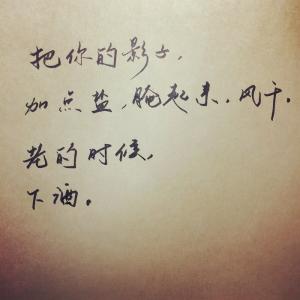 把你的影子，
加点盐，腌起来，风干。
老的时候，
下酒。